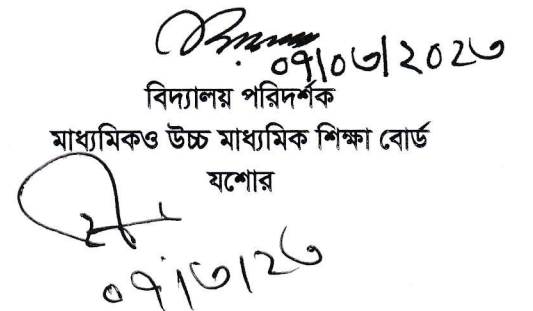 ০৭/০৩/২০২৩
বিদ্যালয় পরিদর্শক
মাধ্যমিকও উচ্চ মাধ্যমিক শিক্ষা বোর্ড
যশোর
০৭/৩/২৩